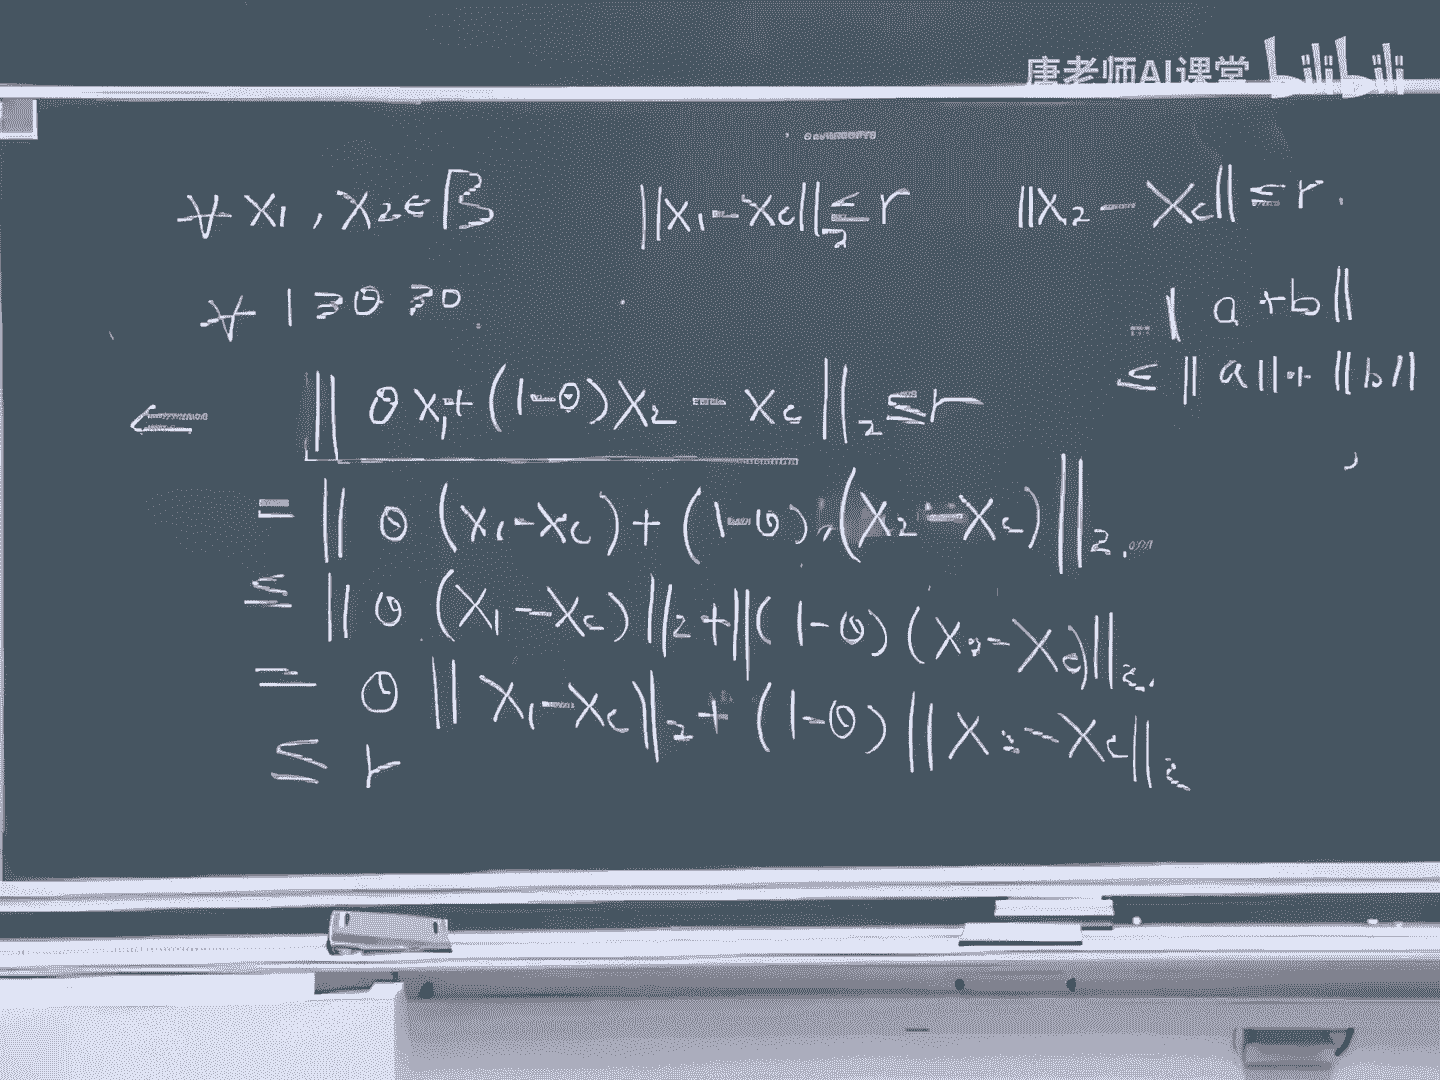 唐老师AI课堂 bilibili
∀ x₁, x₂ ∈ B ‖x₁ - x_c‖₂ ≤ r ‖x₂ - x_c‖ ≤ r.
∀ 1 ≥ θ ≥ 0
‖a + b‖
≤ ‖a‖ + ‖b‖
⇐ ‖θx₁ + (1-θ)x₂ - x_c‖₂ ≤ r
= ‖θ(x₁ - x_c) + (1-θ)(x₂ - x_c)‖₂
≤ ‖θ(x₁ - x_c)‖₂ + ‖(1-θ)(x₂ - x_c)‖₂
= θ‖x₁ - x_c‖₂ + (1-θ)‖x₂ - x_c‖₂
≤ r